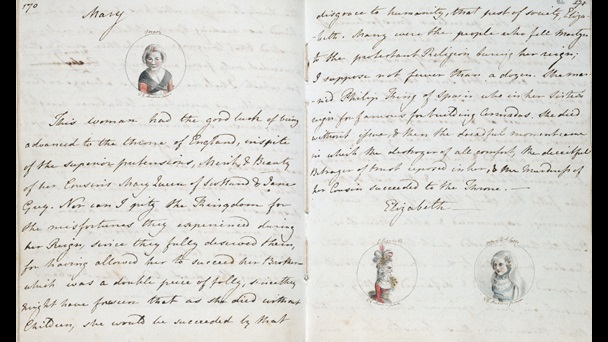 170
Mary
This woman had the good luck of being
advanced to the throne of England, inspite
of the superior pretensions, Merit, & Beauty
of her Cousins Mary Queen of Scotland & Jane
Grey. Nor can I pity the Kingdom for
the misfortunes they experienced during
her Reign, since they fully deserved them,
for having allowed her to succeed her Brother—
which was a double peice of folly, since they
might have foreseen that as she died without
Children, she would be succeeded by that
171
disgrace to humanity, that pest of society, Eliza-
beth. Many were the people who fell martyrs
to the protestant Religion during her reign;
I suppose not fewer than a dozen. She mar-
ried Philip King of Spain who in her Sister's
reign was famous for building Armadas. She died
without issue, & then the dreadful moment came
in which the destroyer of all comfort, the deceitful
Betrayer of trust reposed in her, & the Murderess of
her Cousin succeeded to the Throne.—
Elizabeth